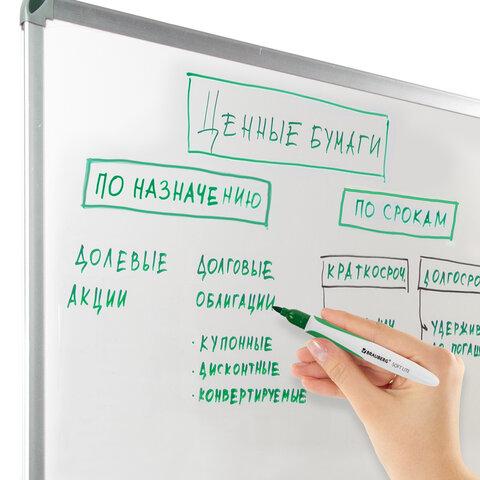 Ценные бумаги
по назначению
по срокам
долевые
акции
долговые
облигации
· купонные
· дисконтные
· конвертируемые
краткосроч.
долгоср
удержив
до погаш
BRAUBERG SOFT LITE